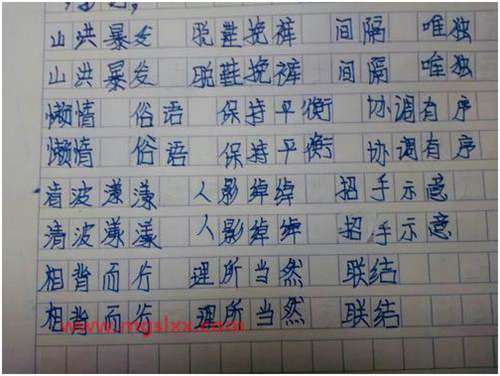 山洪暴发 脱鞋挽裤 间隔 唯独
山洪暴发 脱鞋挽裤 间隔 唯独
懒情 俗语 保持平衡 协调有序
懒情 俗语 保持平衡 协调有序
清波漾漾 人影绰绰 招手示意
清波漾漾 人影绰绰 招手示意
相背而行 理所当然 联结
相背而行 理所当然 联结
www.mgslxx.com